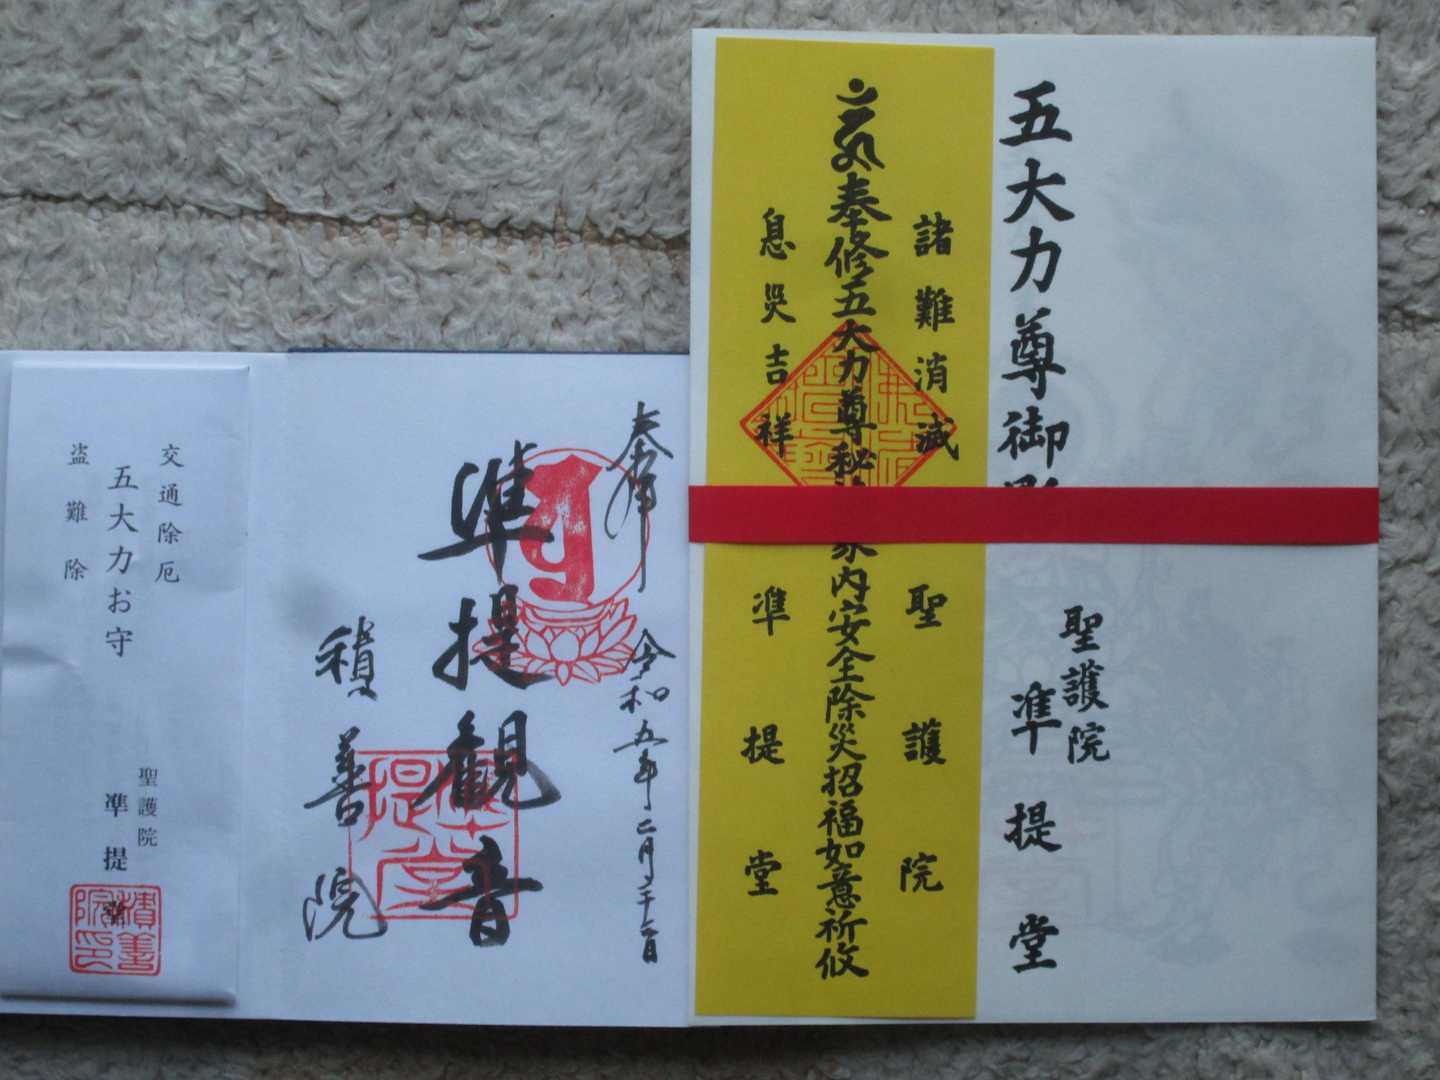 五大力尊御
聖護院
準提堂
諸難消滅
奉修五大力尊秘
家内安全除災招福如意祈攸
息災吉祥
聖護院
準提堂
奉拝
令和五年二月二十三日
準提観音
積善院
準提堂
交通除厄
五大力お守
盗難除
聖護院
準提堂
積善院印